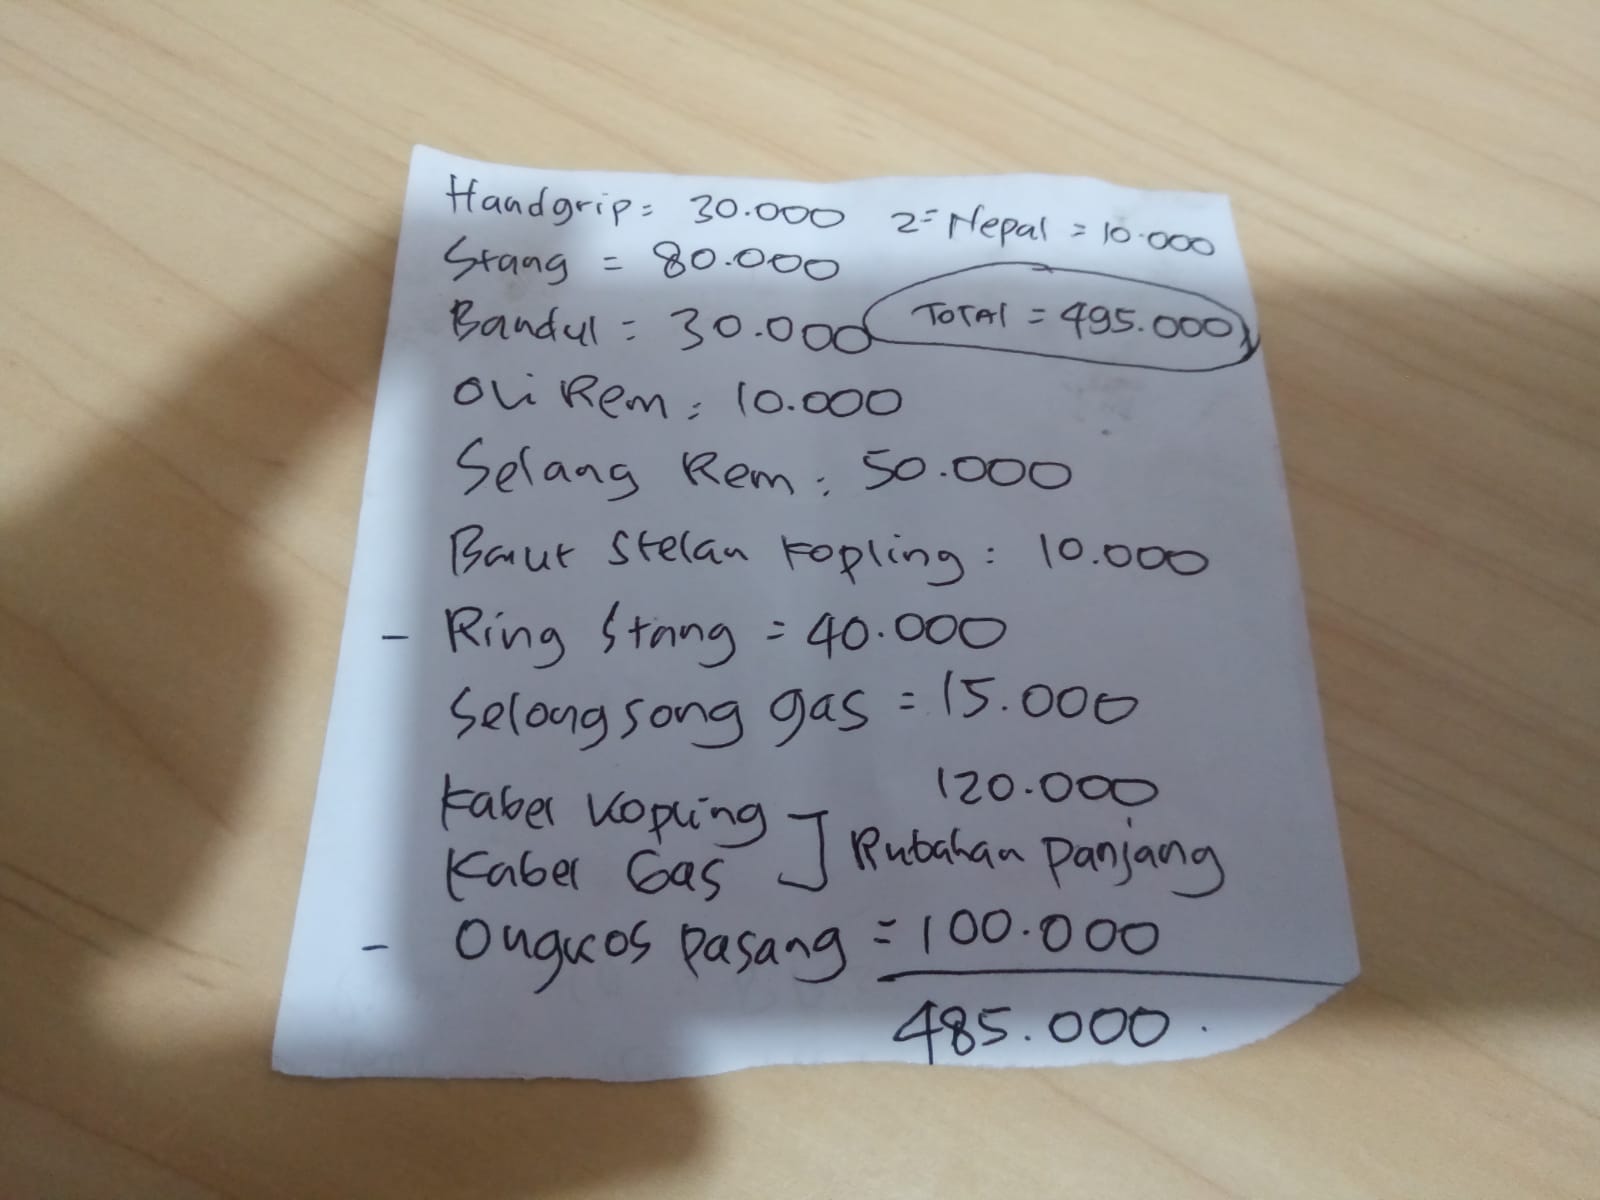 Handgrip = 30.000
2 = Nepal = 10.000
Stang = 80.000
Bandul = 30.000
TOTAl = 495.000
Oli Rem : 10.000
Selang Rem : 50.000
Baut Stelan Kopling : 10.000
- Ring Stang = 40.000
Selongsong gas = 15.000
120.000
Kabel Kopling
Kabel Gas ] Rubahan Panjang
- Ongkos pasang = 100.000
485.000